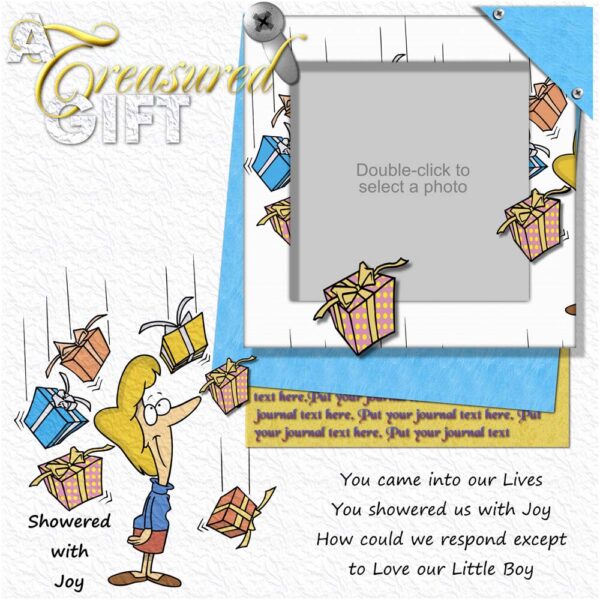 A
Treasured
GIFT
Double-click to
select a photo
text here.Put your journal text here. Put your
journal text here. Put your journal text here. Put
your journal text here. Put your journal text
You came into our Lives
You showered us with Joy
How could we respond except
to Love our Little Boy
Showered
with
Joy